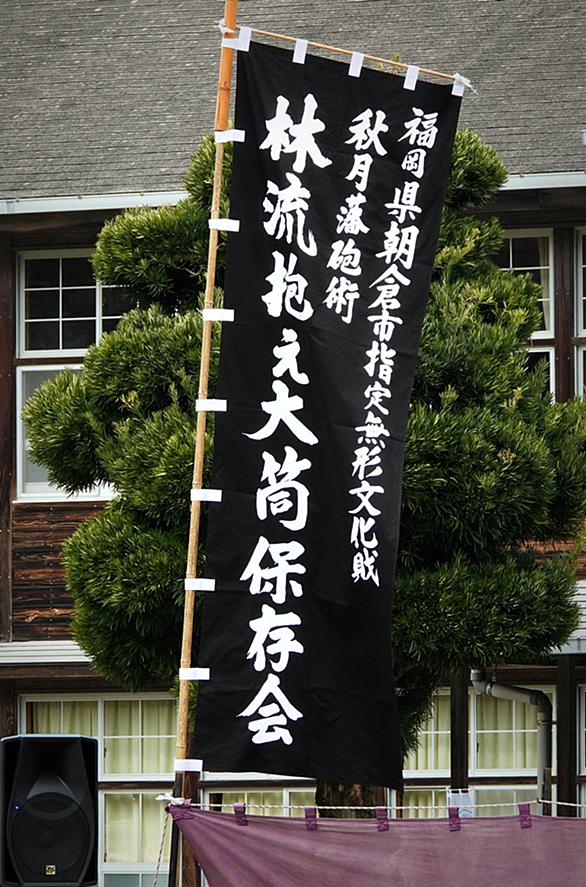 福岡県朝倉市指定無形文化財
秋月藩砲術
林流抱え大筒保存会